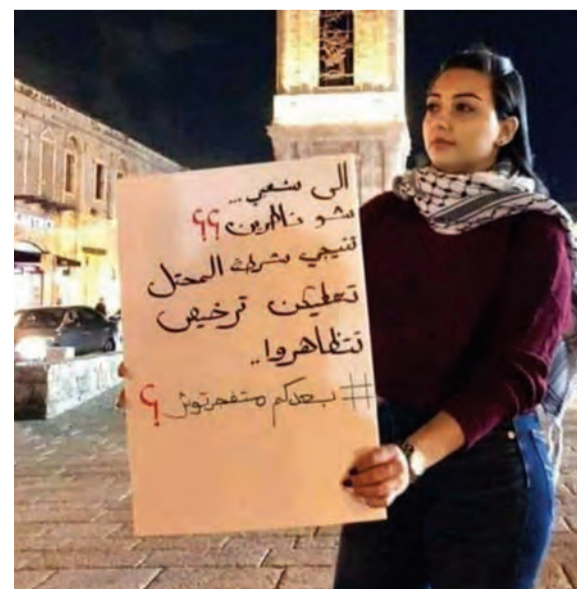 الى شعبي...
شو ناطرين ؟؟
تتيجي شرطة المحتل
تعطيكن ترخيص
تتظاهروا..
# بعدكم متفجرتوش ؟